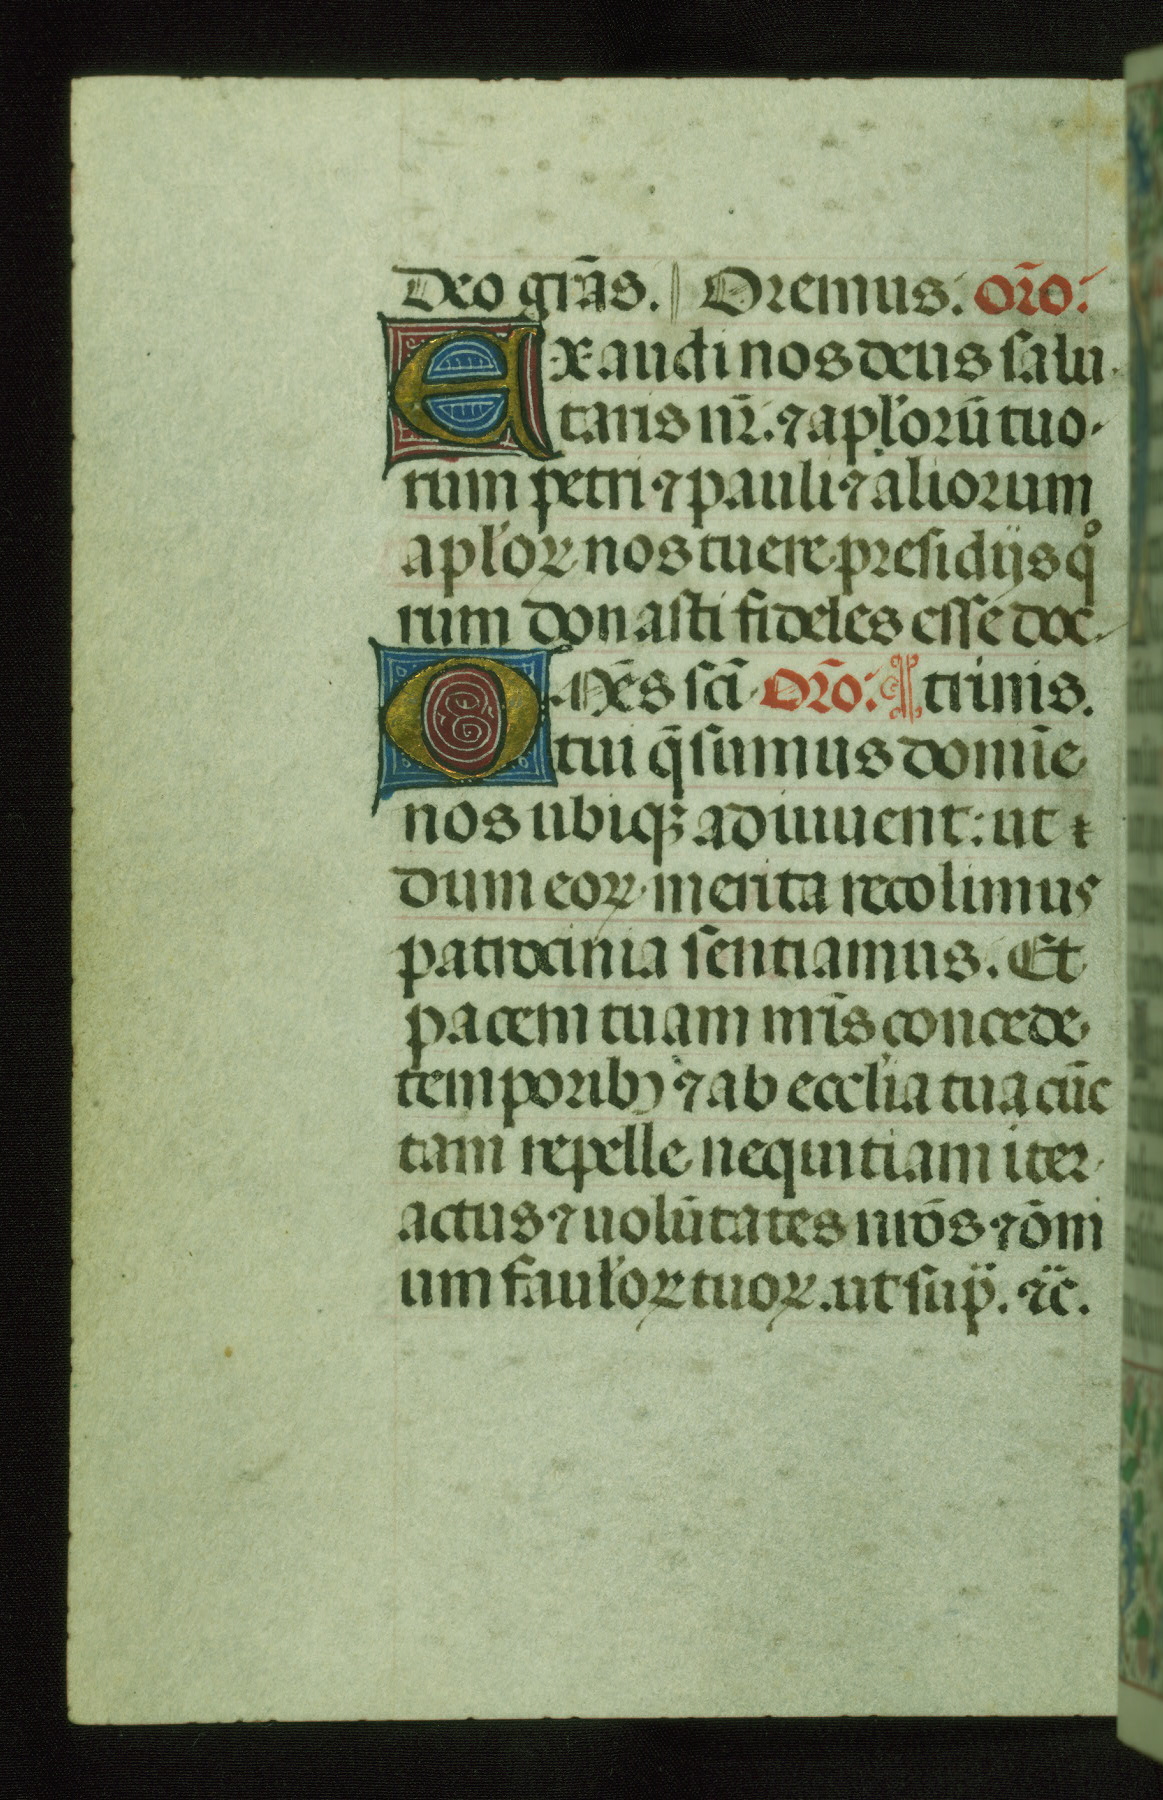 Deo grās. Oremus. orō:
Exaudi nos deus salu
taris nr̄. ⁊ apl'orū tuo-
rum petri ⁊ pauli ⁊ aliorum
apl'oꝝ nos tuere presidijs qͦ
rum donasti fideles esse doc.
Om̄es sc̄i orō: ¶ trinis.
tui q̄sumus domīe
nos ubiqꝫ adiuuent: ut
dum eoꝝ merita recolimus
patrocinia sentiamus. Et
pacem tuam nrīs concede
temporibꝫ ⁊ ab eccl'ia tua cūc
tam repelle nequitiam iter
actus ⁊ uolūtates nrōs ⁊ ōni
um faul'oꝝ tuoꝝ. ut sup̄. ⁊c̄.